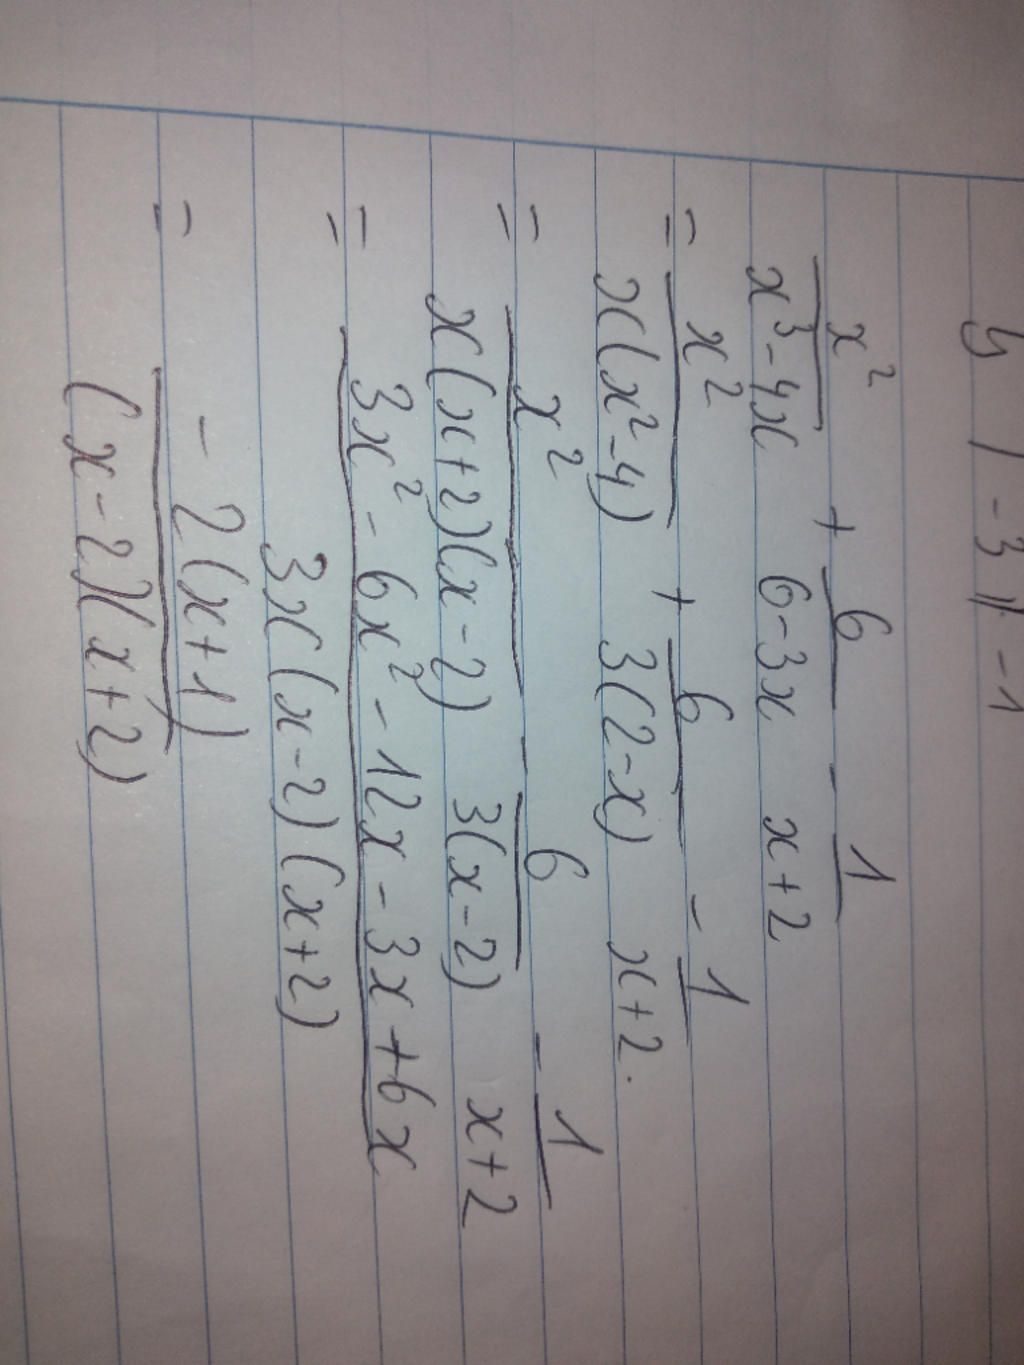 x² / (x³ - 4x) + 6 / (6 - 3x) - 1 / (x + 2)
= x² / (x(x² - 4)) + 6 / (3(2 - x)) - 1 / (x + 2).
= x² / (x(x + 2)(x - 2)) - 6 / (3(x - 2)) - 1 / (x + 2)
= (3x² - 6x² - 12x - 3x + 6x) / (3x(x - 2)(x + 2))
= - 2(x + 1) / ((x - 2)(x + 2))